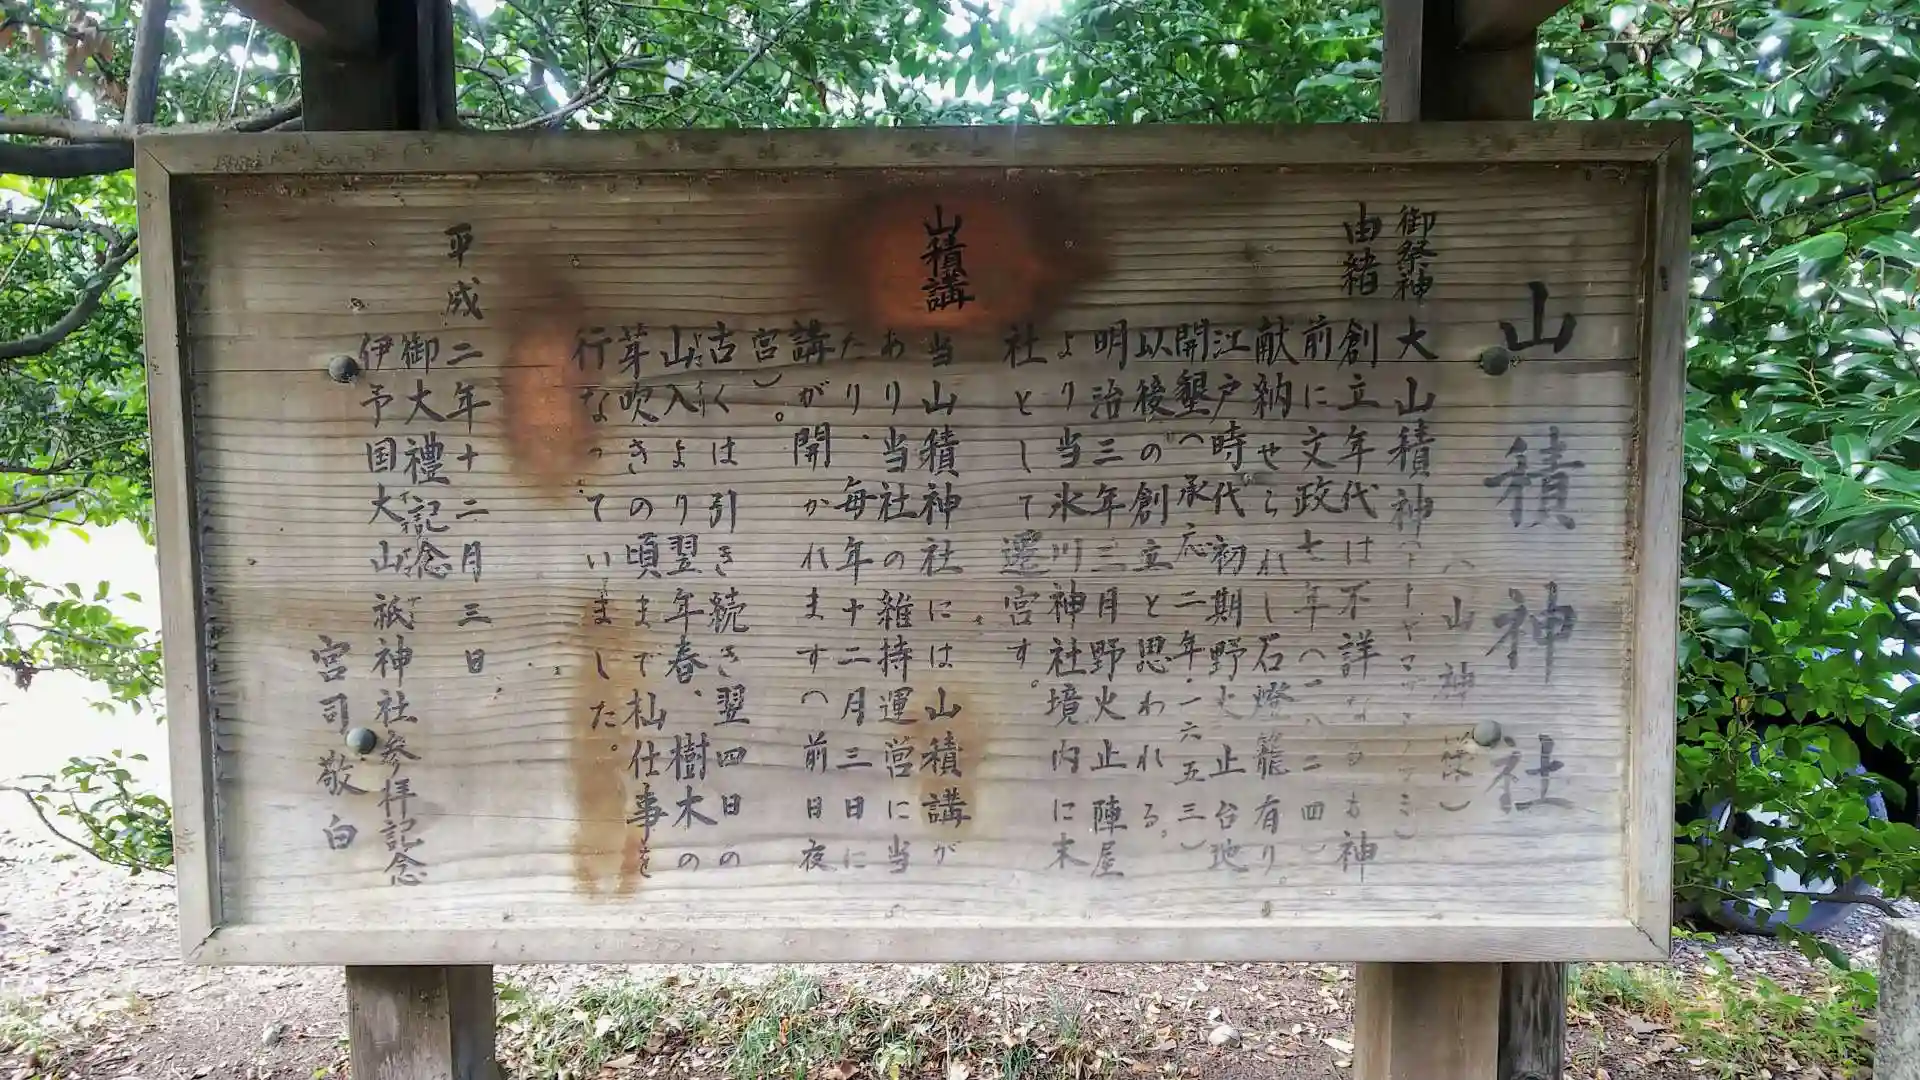 山積神社
(山神様)
御祭神 大山積神(オオヤマツミノカミ)
由緒 創立年代は不詳なるも神
前に文政七年(一八二四)
献納せられし石燈籠有り。
江戸時代初期野火止台地
開墾(承応二年・一六五三)
以後の創立と思われる。
明治三年三月野火止陣屋
より当氷川神社境内に末
社として遷宮す。
山積講 当山積神社には山積講が
あり当社の維持運営に当
たり、毎年十二月三日に
講が開かれます(前日夜
宮)。
古くは引き続き翌四日の
山入より翌年春、樹木の
芽吹きの頃まで杣仕事を
行なっていました。
平成二年十二月三日
御大禮記念
伊予国大山祇神社参拝記念
宮司 敬白